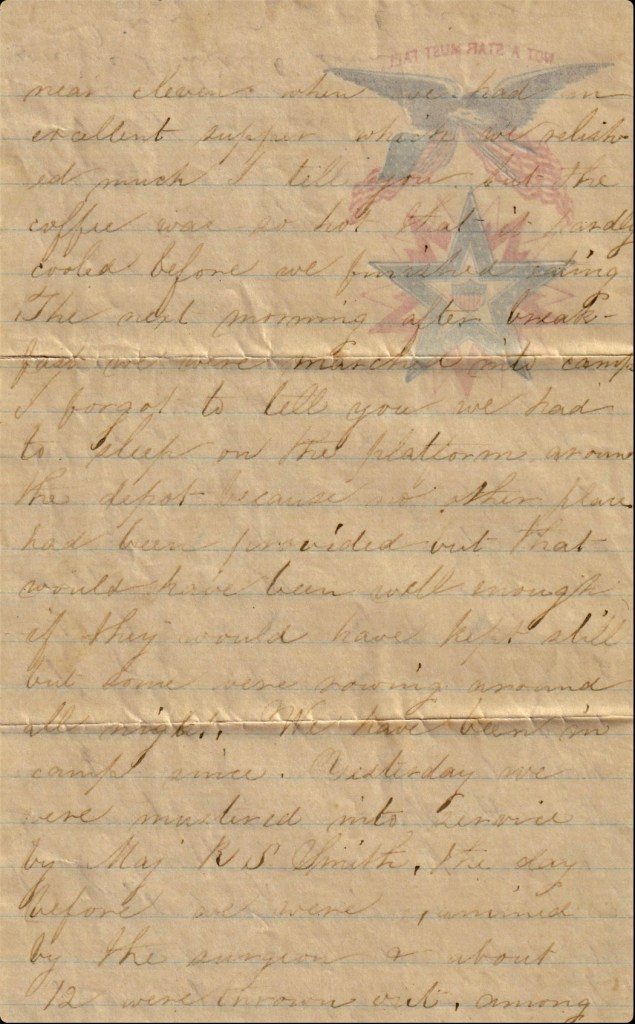 NOT A STAR MUST FALL
near eleven when we had an
excellent supper which we relish-
ed much I tell you but the
coffee was so hot that it hardly
cooled before we finished eating
The next morning after break-
fast we were marched into camp
I forgot to tell you we had
to sleep on the platform aroun
the depot because no other place
had been provided but that
would have been well enough
if they would have kept still
but some were rowing around
all night. We have been in
camp since. Yesterday we
were mustered into service
by Maj R S Smith, the day
before we were
by the surgeon & about
12 were thrown out, among